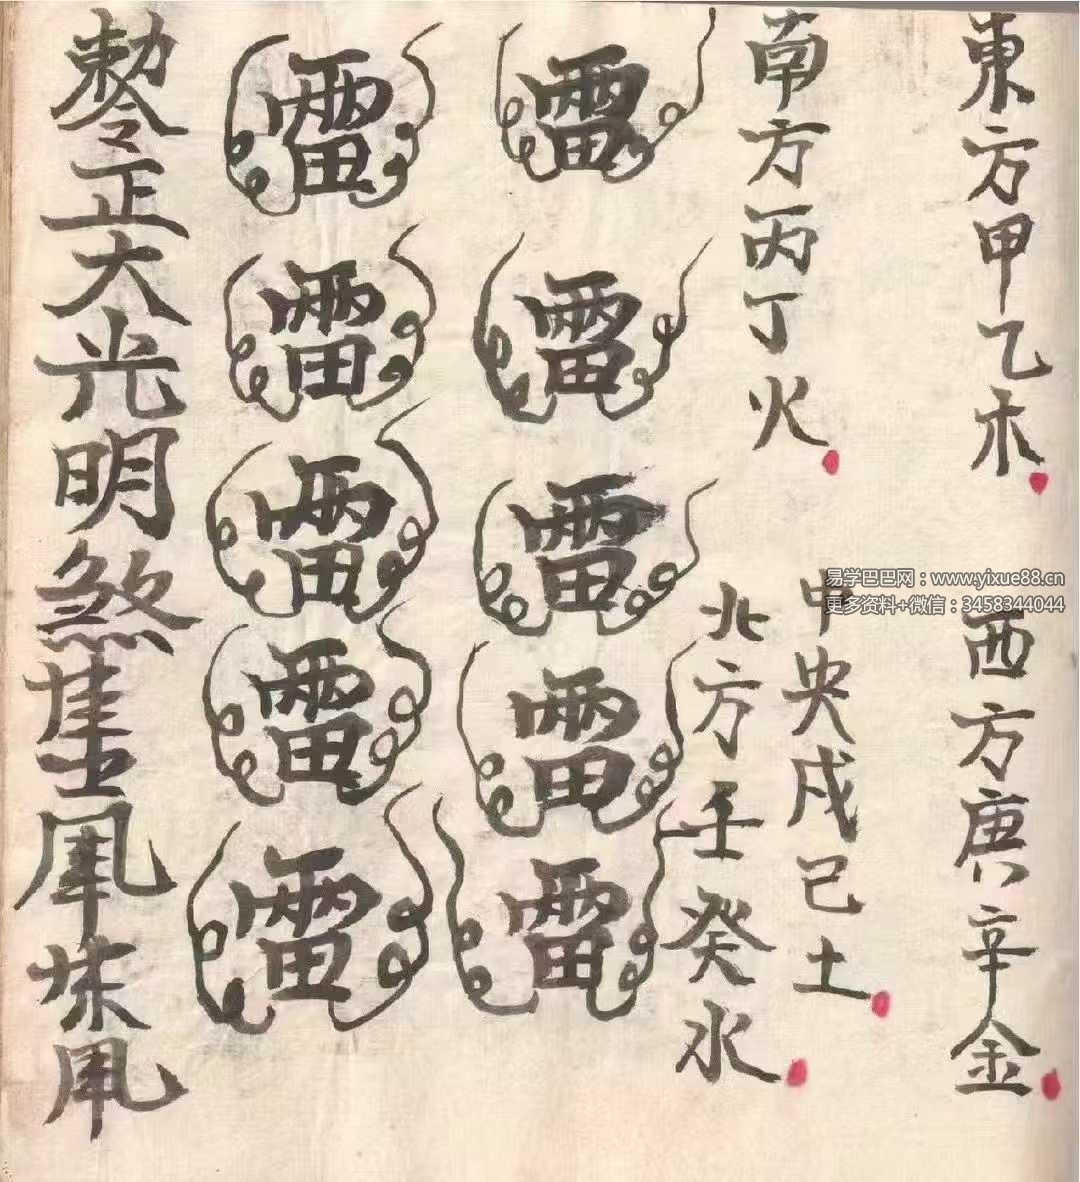 東方甲乙木
西方庚辛金
南方丙丁火
中央戊己土
北方壬癸水
雷
雷
雷
雷
雷
雷
雷
雷
雷
雷
勅令正大光明煞
易学巴巴网：www.yixue88.cn
更多资料+微信：3458344044